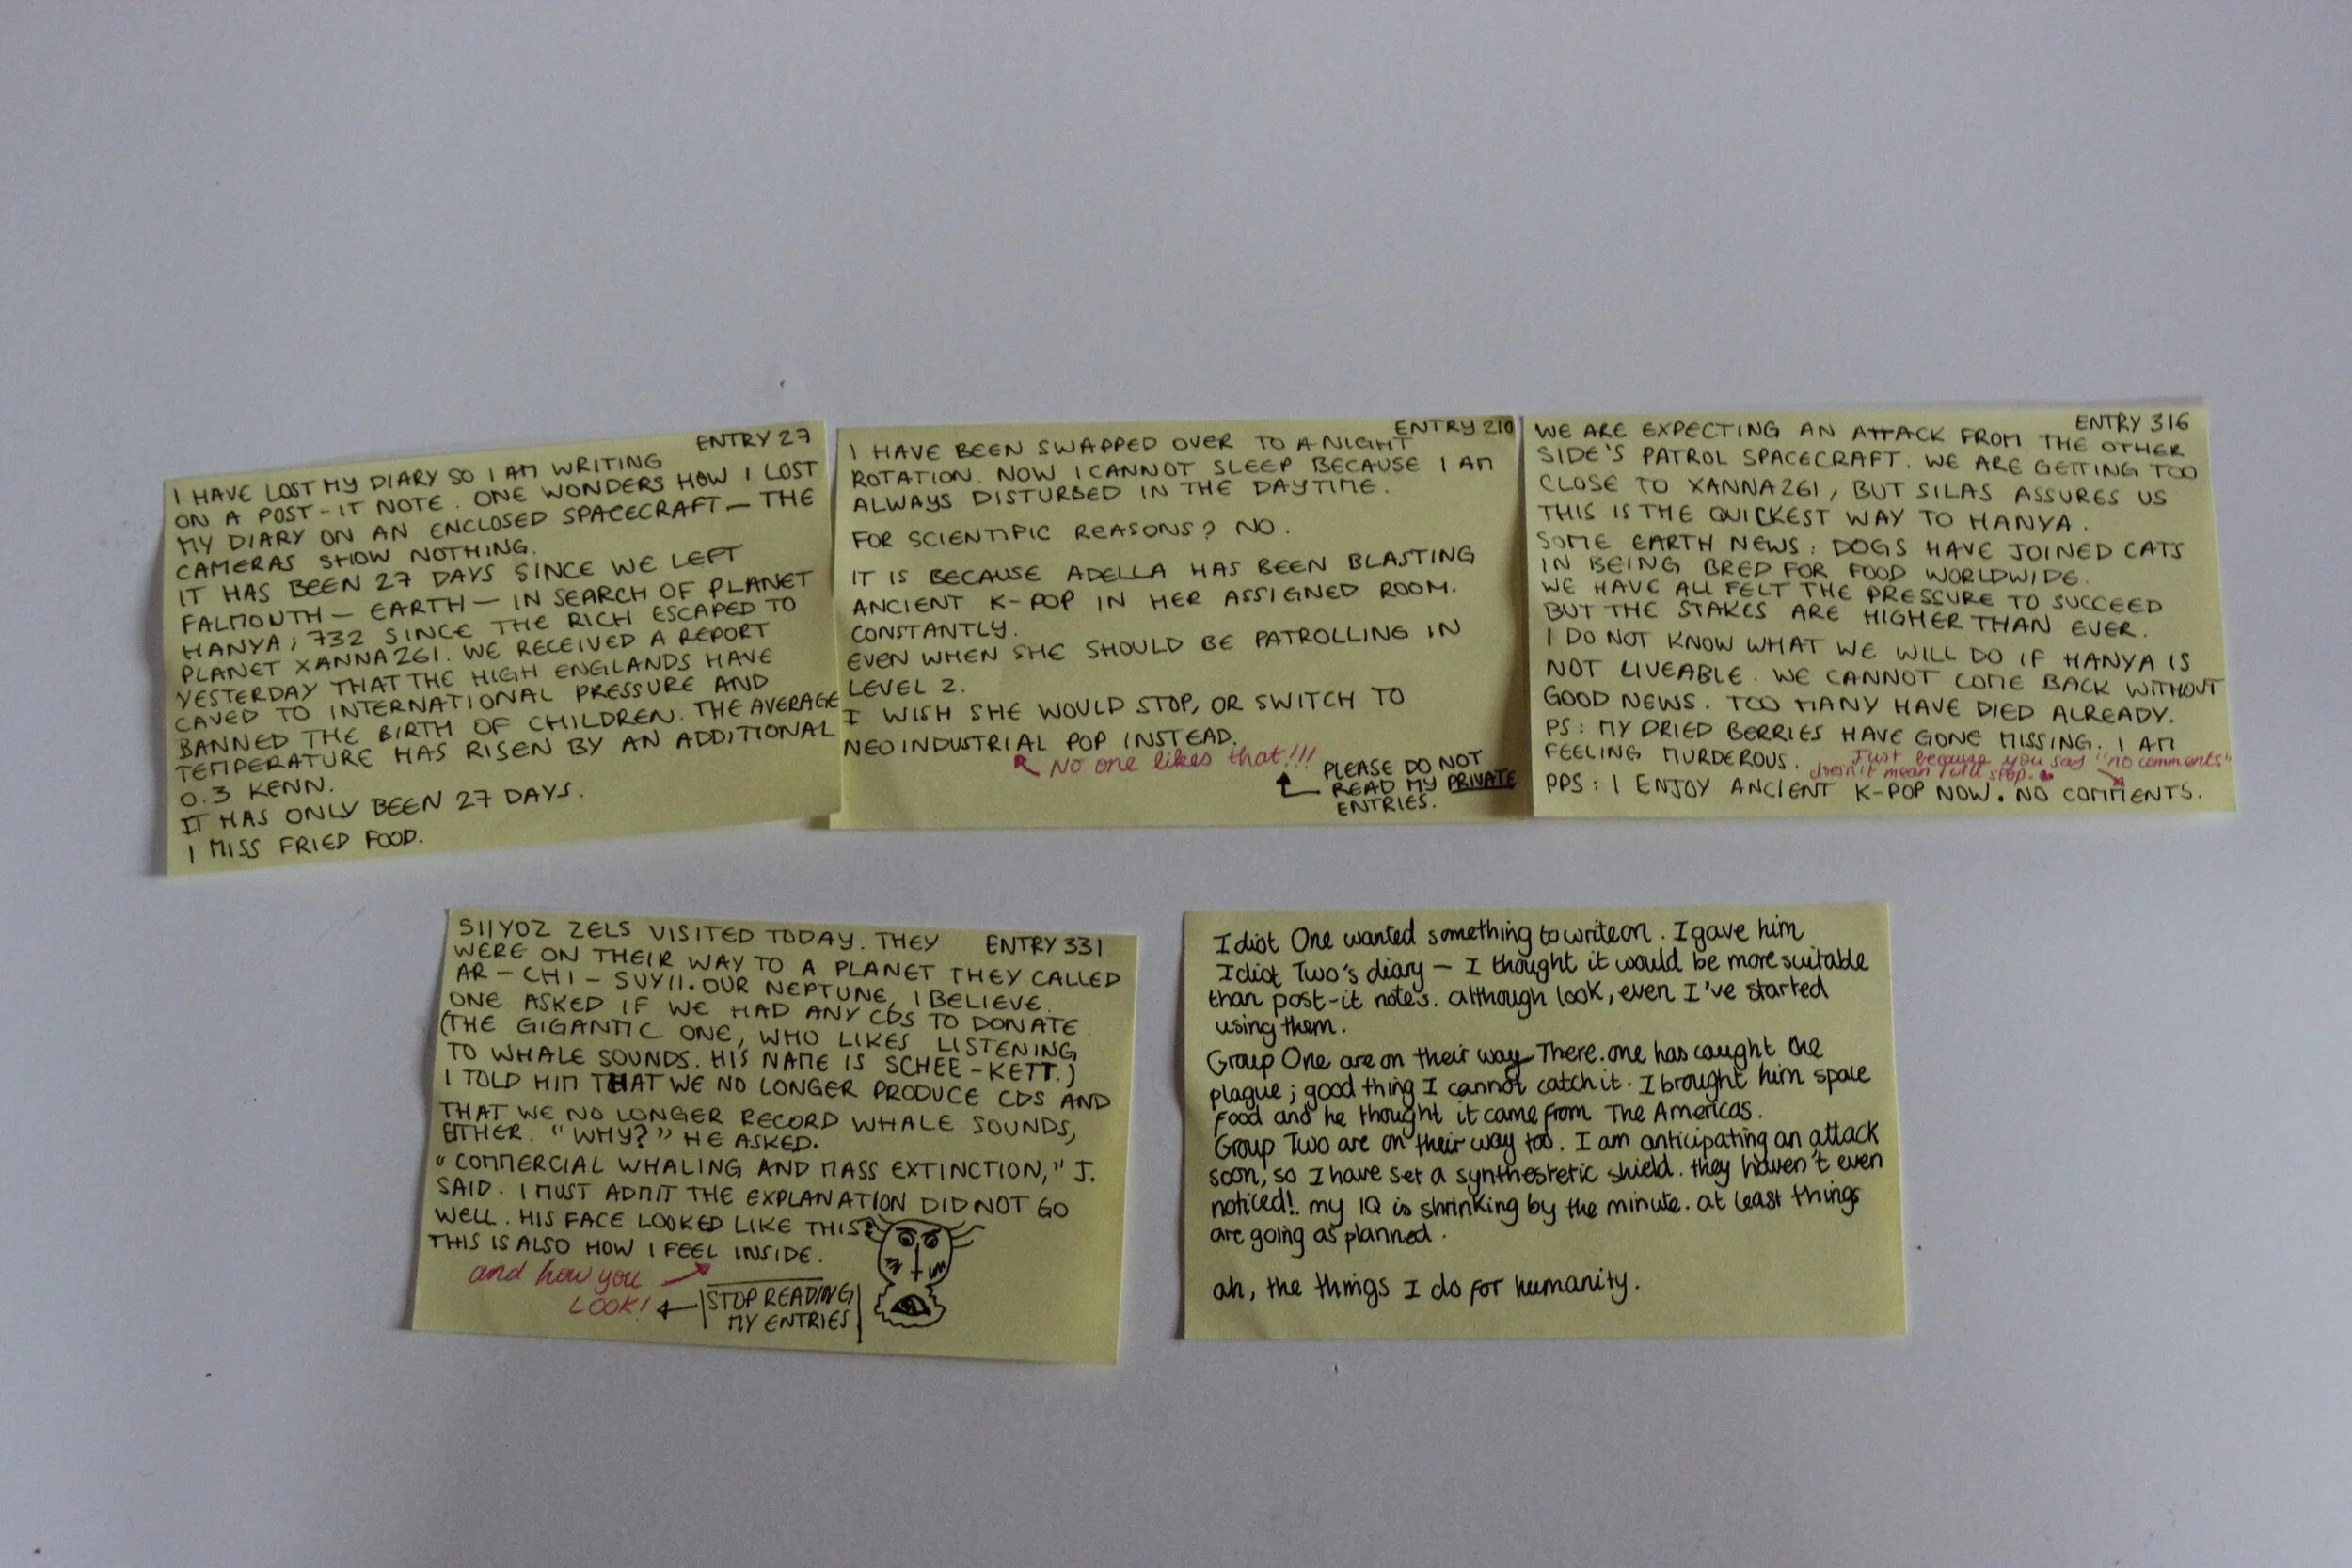 ENTRY 27
I HAVE LOST MY DIARY SO I AM WRITING
ON A POST-IT NOTE. ONE WONDERS HOW I LOST
MY DIARY ON AN ENCLOSED SPACECRAFT — THE
CAMERAS SHOW NOTHING.
IT HAS BEEN 27 DAYS SINCE WE LEFT
FALMOUTH — EARTH — IN SEARCH OF PLANET
HANYA; 732 SINCE THE RICH ESCAPED TO
PLANET XANNA261. WE RECEIVED A REPORT
YESTERDAY THAT THE HIGH ENGLANDS HAVE
CAVED TO INTERNATIONAL PRESSURE AND
BANNED THE BIRTH OF CHILDREN. THE AVERAGE
TEMPERATURE HAS RISEN BY AN ADDITIONAL
0.3 KENN.
IT HAS ONLY BEEN 27 DAYS.
I MISS FRIED FOOD.
ENTRY 210
I HAVE BEEN SWAPPED OVER TO A NIGHT
ROTATION. NOW I CANNOT SLEEP BECAUSE I AM
ALWAYS DISTURBED IN THE DAYTIME.
FOR SCIENTIFIC REASONS? NO.
IT IS BECAUSE ADELLA HAS BEEN BLASTING
ANCIENT K-POP IN HER ASSIGNED ROOM.
CONSTANTLY.
EVEN WHEN SHE SHOULD BE PATROLLING IN
LEVEL 2.
I WISH SHE WOULD STOP, OR SWITCH TO
NEOINDUSTRIAL POP INSTEAD.
No one likes that!!!
PLEASE DO NOT
READ MY PRIVATE
ENTRIES.
ENTRY 316
WE ARE EXPECTING AN ATTACK FROM THE OTHER
SIDE'S PATROL SPACECRAFT. WE ARE GETTING TOO
CLOSE TO XANNA261, BUT SILAS ASSURES US
THIS IS THE QUICKEST WAY TO HANYA.
SOME EARTH NEWS: DOGS HAVE JOINED CATS
IN BEING BRED FOR FOOD WORLDWIDE.
WE HAVE ALL FELT THE PRESSURE TO SUCCEED
BUT THE STAKES ARE HIGHER THAN EVER.
I DO NOT KNOW WHAT WE WILL DO IF HANYA IS
NOT LIVEABLE. WE CANNOT COME BACK WITHOUT
GOOD NEWS. TOO MANY HAVE DIED ALREADY.
PS: MY DRIED BERRIES HAVE GONE MISSING. I AM
FEELING MURDEROUS.
Just because you say "no comments"
doesn't mean I will stop.
PPS: I ENJOY ANCIENT K-POP NOW. NO COMMENTS.
ENTRY 331
SIIYOZ ZELS VISITED TODAY. THEY
WERE ON THEIR WAY TO A PLANET THEY CALLED
AR-CHI-SUYII. OUR NEPTUNE, I BELIEVE.
ONE ASKED IF WE HAD ANY CDS TO DONATE.
(THE GIGANTIC ONE, WHO LIKES LISTENING
TO WHALE SOUNDS. HIS NAME IS SCHEE-KETT.)
I TOLD HIM THAT WE NO LONGER PRODUCE CDS AND
THAT WE NO LONGER RECORD WHALE SOUNDS,
EITHER. "WHY?" HE ASKED.
"COMMERCIAL WHALING AND MASS EXTINCTION," J.
SAID. I MUST ADMIT THE EXPLANATION DID NOT GO
WELL. HIS FACE LOOKED LIKE THIS:
THIS IS ALSO HOW I FEEL INSIDE.
and how you
LOOK!
STOP READING
MY ENTRIES
Idiot One wanted something to write on. I gave him
Idiot Two's diary — I thought it would be more suitable
than post-it notes. although look, even I've started
using them.
Group One are on their way There. one has caught the
plague; good thing I cannot catch it. I brought him space
food and he thought it came from The Americas.
Group Two are on their way too. I am anticipating an attack
soon, so I have set a synthestetic shield. they haven't even
noticed!. my IQ is shrinking by the minute. at least things
are going as planned.
ah, the things I do for humanity.